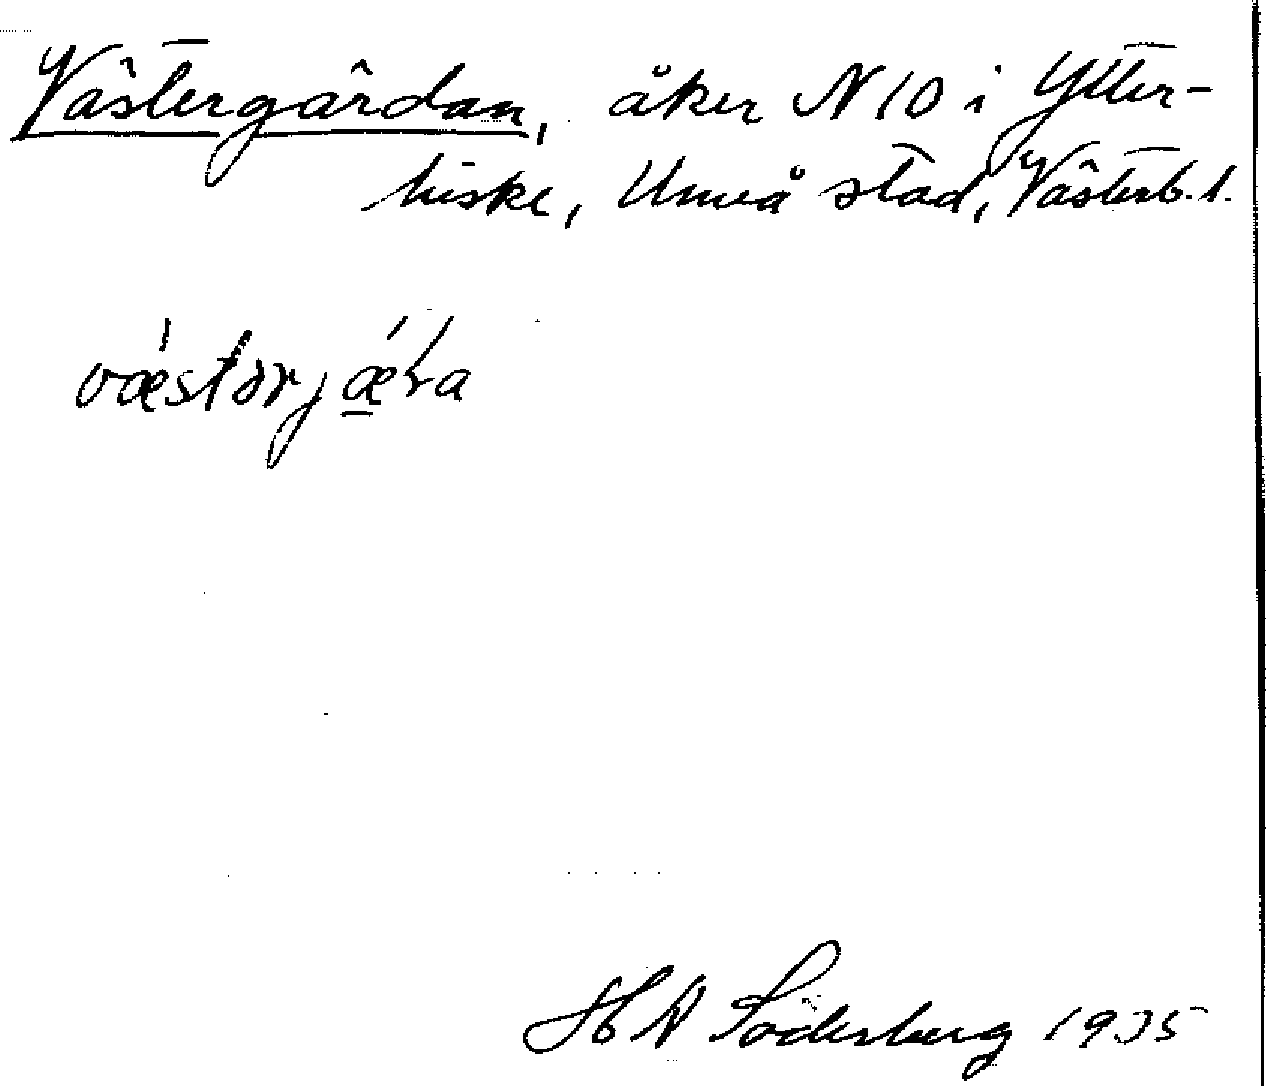 Västergärdan, åker N 10 i Ytter-
hiske, Umeå stad, Västerb. l.
væ´stərjæ´ra
H A Söderberg 1935